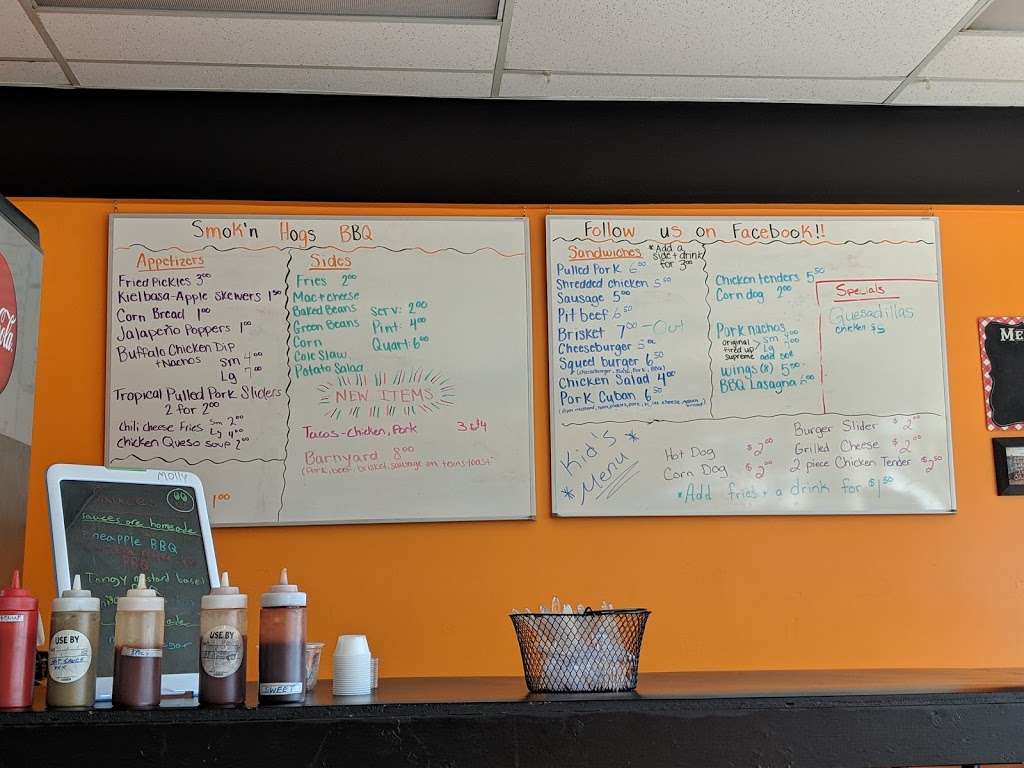 Smok'n Hogs BBQ
Appetizers
Fried Pickles 3⁰⁰
Kielbasa-Apple skewers 1⁵⁰
Corn Bread 1⁰⁰
Jalapeño Poppers 1⁰⁰
Buffalo Chicken Dip
+Nachos sm 4⁰⁰
Lg 7⁰⁰
Tropical Pulled Pork Sliders
2 for 2⁰⁰
Chili cheese fries Sm 2⁰⁰
Lg 4⁰⁰
Chicken Queso soup 2⁰⁰
1⁰⁰
Sides
Fries 2⁰⁰
Mac+cheese
Baked Beans
Green Beans
Corn
Cole Slaw
Potato Salad
serv: 2⁰⁰
Pint: 4⁰⁰
Quart: 6⁰⁰
NEW ITEMS
Tacos-Chicken, Pork
Barnyard 8⁰⁰
(Pork, beef, brisket, sausage on texas toast
Follow us on Facebook!!
Sandwiches
*Add a
side + drink
for 3⁰⁰
Pulled Pork 6⁰⁰
Shredded chicken 5⁵⁰
Sausage 5⁰⁰
Pit beef 6⁵⁰
Brisket 7⁰⁰ - Out
Cheeseburger
Squeel burger 6⁵⁰
Chicken Salad 4⁰⁰
Pork Cuban 6⁵⁰
Chicken tenders 5⁵⁰
Corn dog 2⁰⁰
Pork nachos
original
fired up
supreme
sm
Lg
add
wings (8) 5⁰⁰
BBQ Lasagna
Specials
Quesadillas
chicken $5
*Kid's
Menu*
Hot Dog $2⁰⁰
Corn Dog $2⁰⁰
Burger Slider $2⁰⁰
Grilled Cheese $2⁰⁰
2 piece Chicken Tender $2⁵⁰
*Add fries + a drink for $1⁵⁰
Molly
Sauces are homemade
BBQ
Tangy mustard base
USE BY
USE BY
SWEET
ME